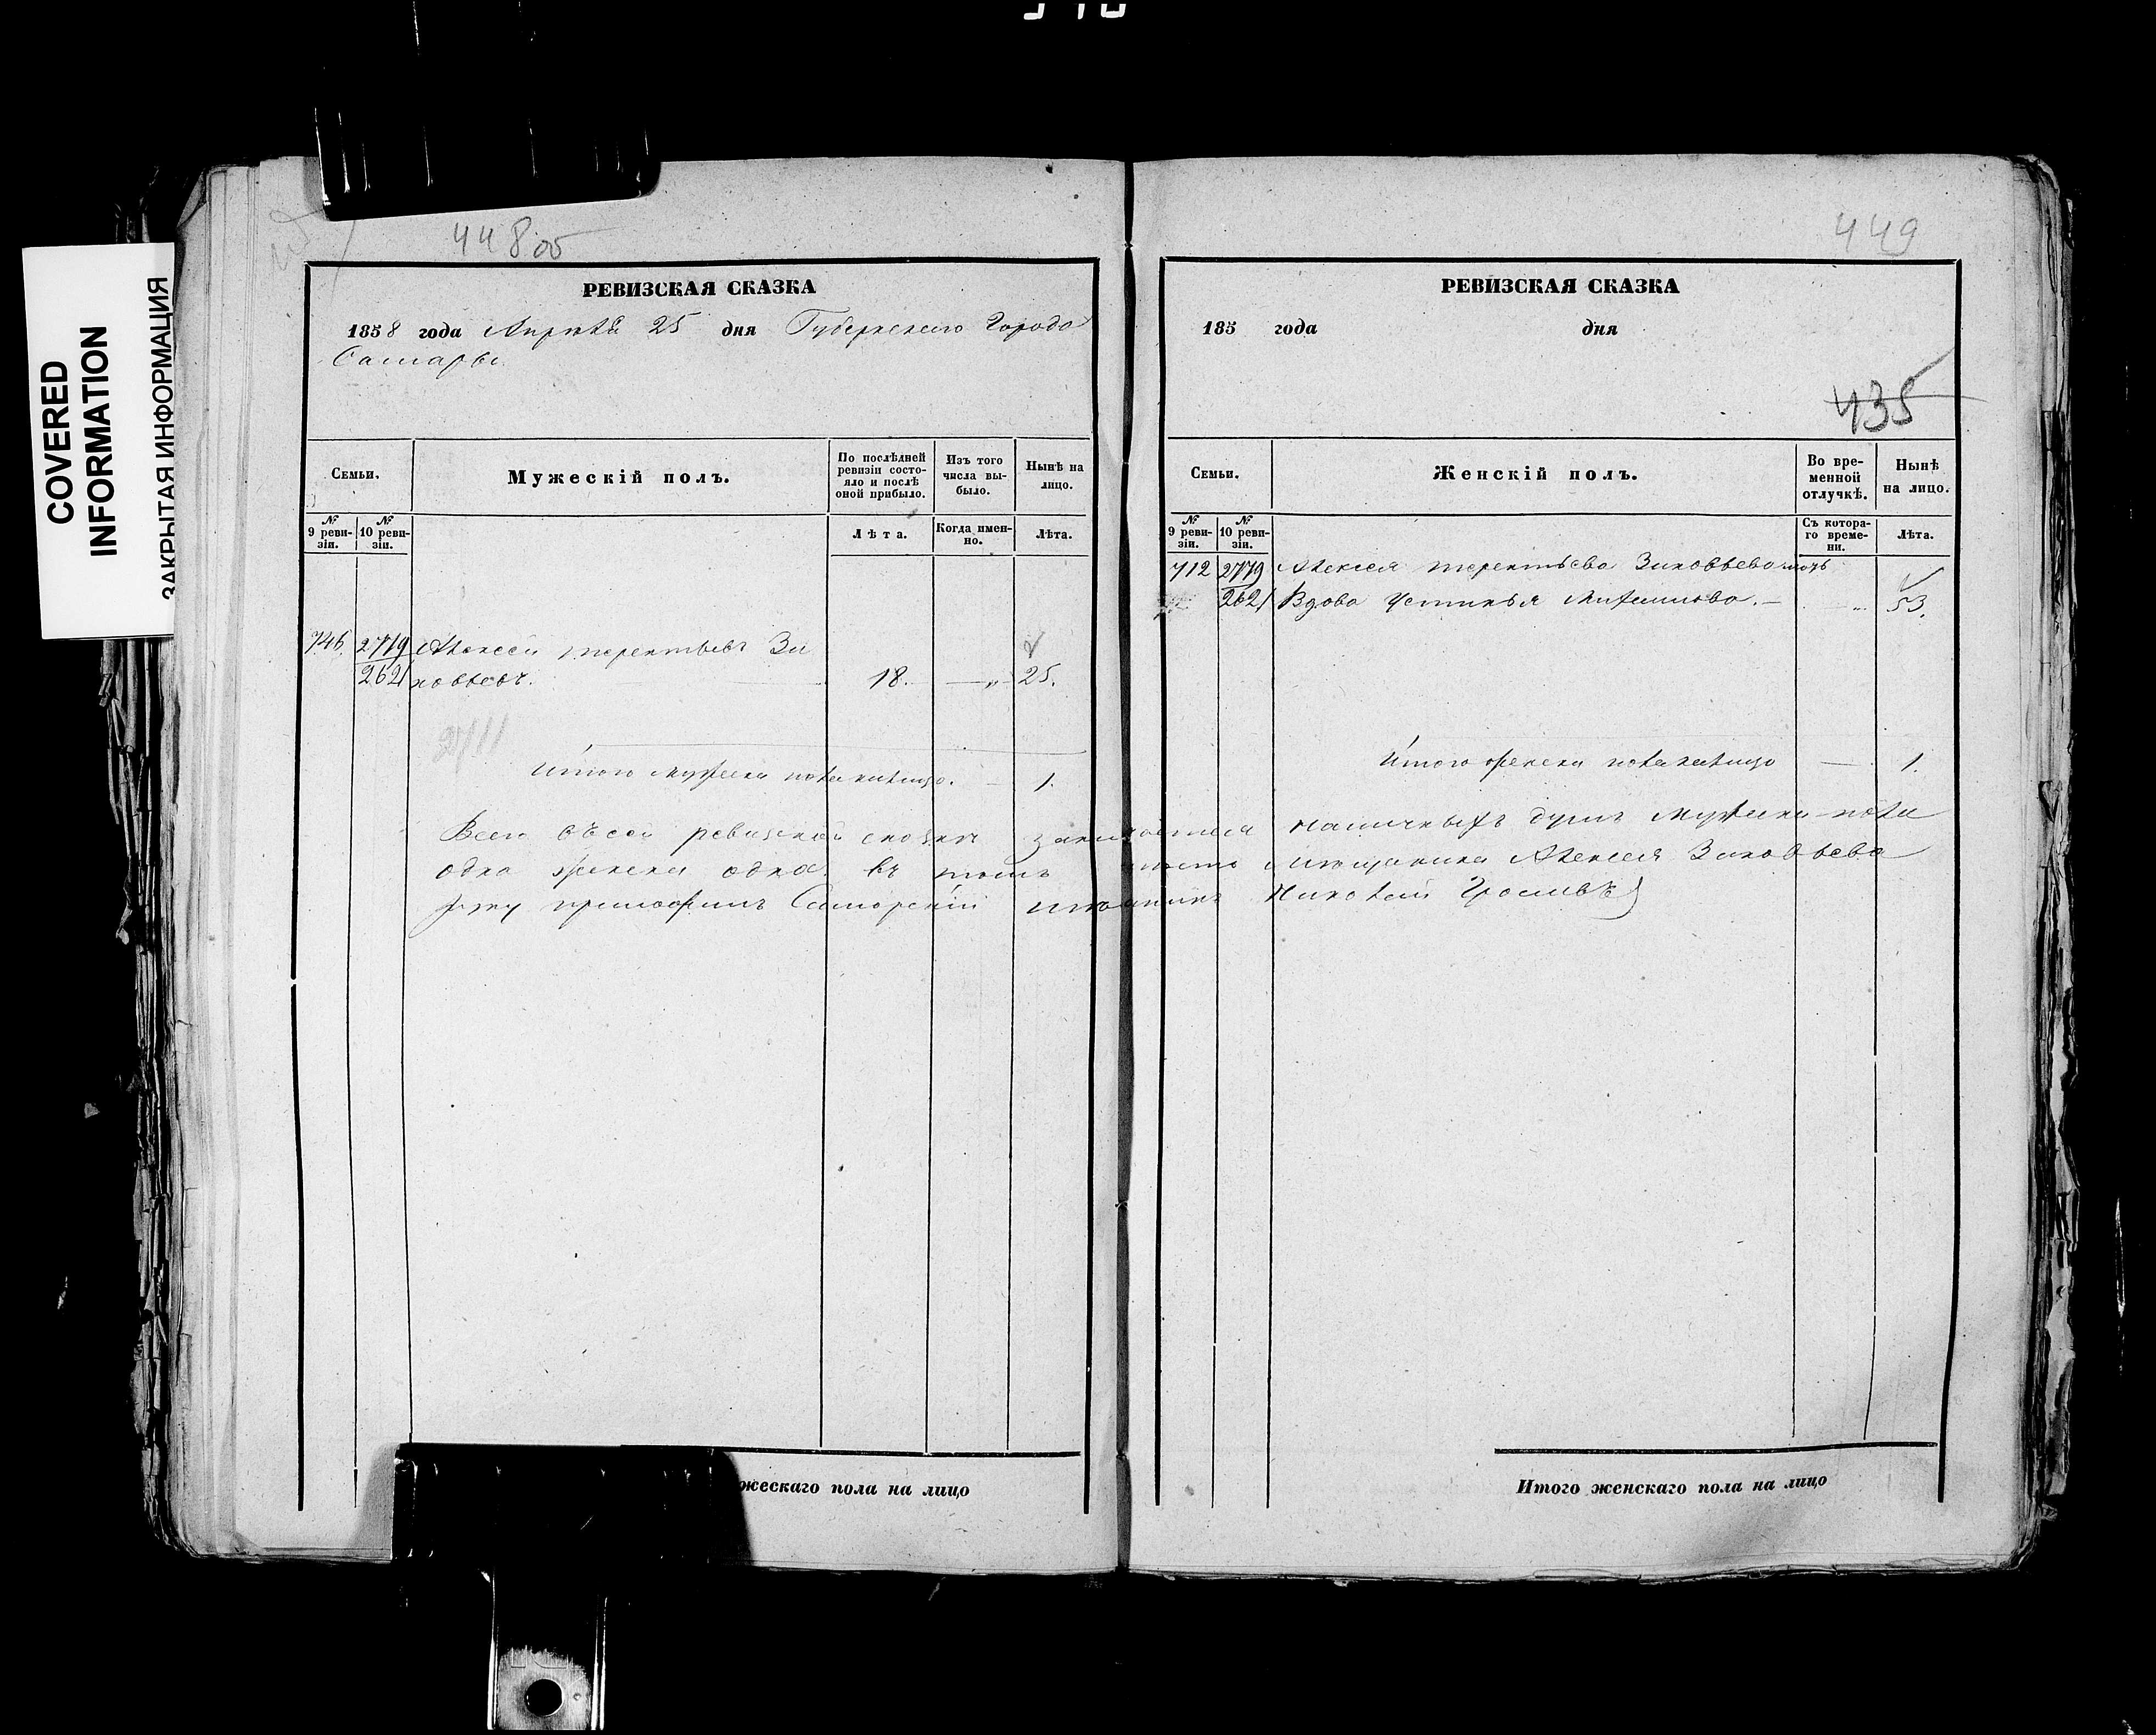 COVERED
INFORMATION
ЗАКРЫТАЯ ИНФОРМАЦИЯ
448об
РЕВИЗСКАЯ СКАЗКА
1858 года Апрѣля 25 дня Губернскаго Города
Самары
Семьи.
Мужескій полъ.
По послѣдней ревизіи состояло и послѣ оной прибыло.
Изъ того числа выбыло.
Нынѣ на лицо.
№ 9 ревизіи.
№ 10 ревизіи.
Лѣта.
Когда именно.
Лѣта.
746. 2779 Алексей терентьевъ Зи
2621 новьевъ. 18. — „ 25.
2711
Итого мужеска пола налицо. — 1.
Всего въ сей ревизской сказке заключается наличныхъ душъ Мужеска пола
одна женска одна въ томъ место мещанина Алексея Зиновьева
руку приложилъ Самарскій мещанинъ Николай
жескаго пола на лицо
449
РЕВИЗСКАЯ СКАЗКА
185 года дня
435
Семьи.
Женскій полъ.
Во временной отлучкѣ.
Нынѣ на лицо.
№ 9 ревизіи.
№ 10 ревизіи.
Съ котораго времени.
Лѣта.
712 2779 Алексея терентьева Зиновьева мать
2621 Вдова Устинья — „ 53.
Итого женска пола налицо — 1.
Итого женскаго пола на лицо